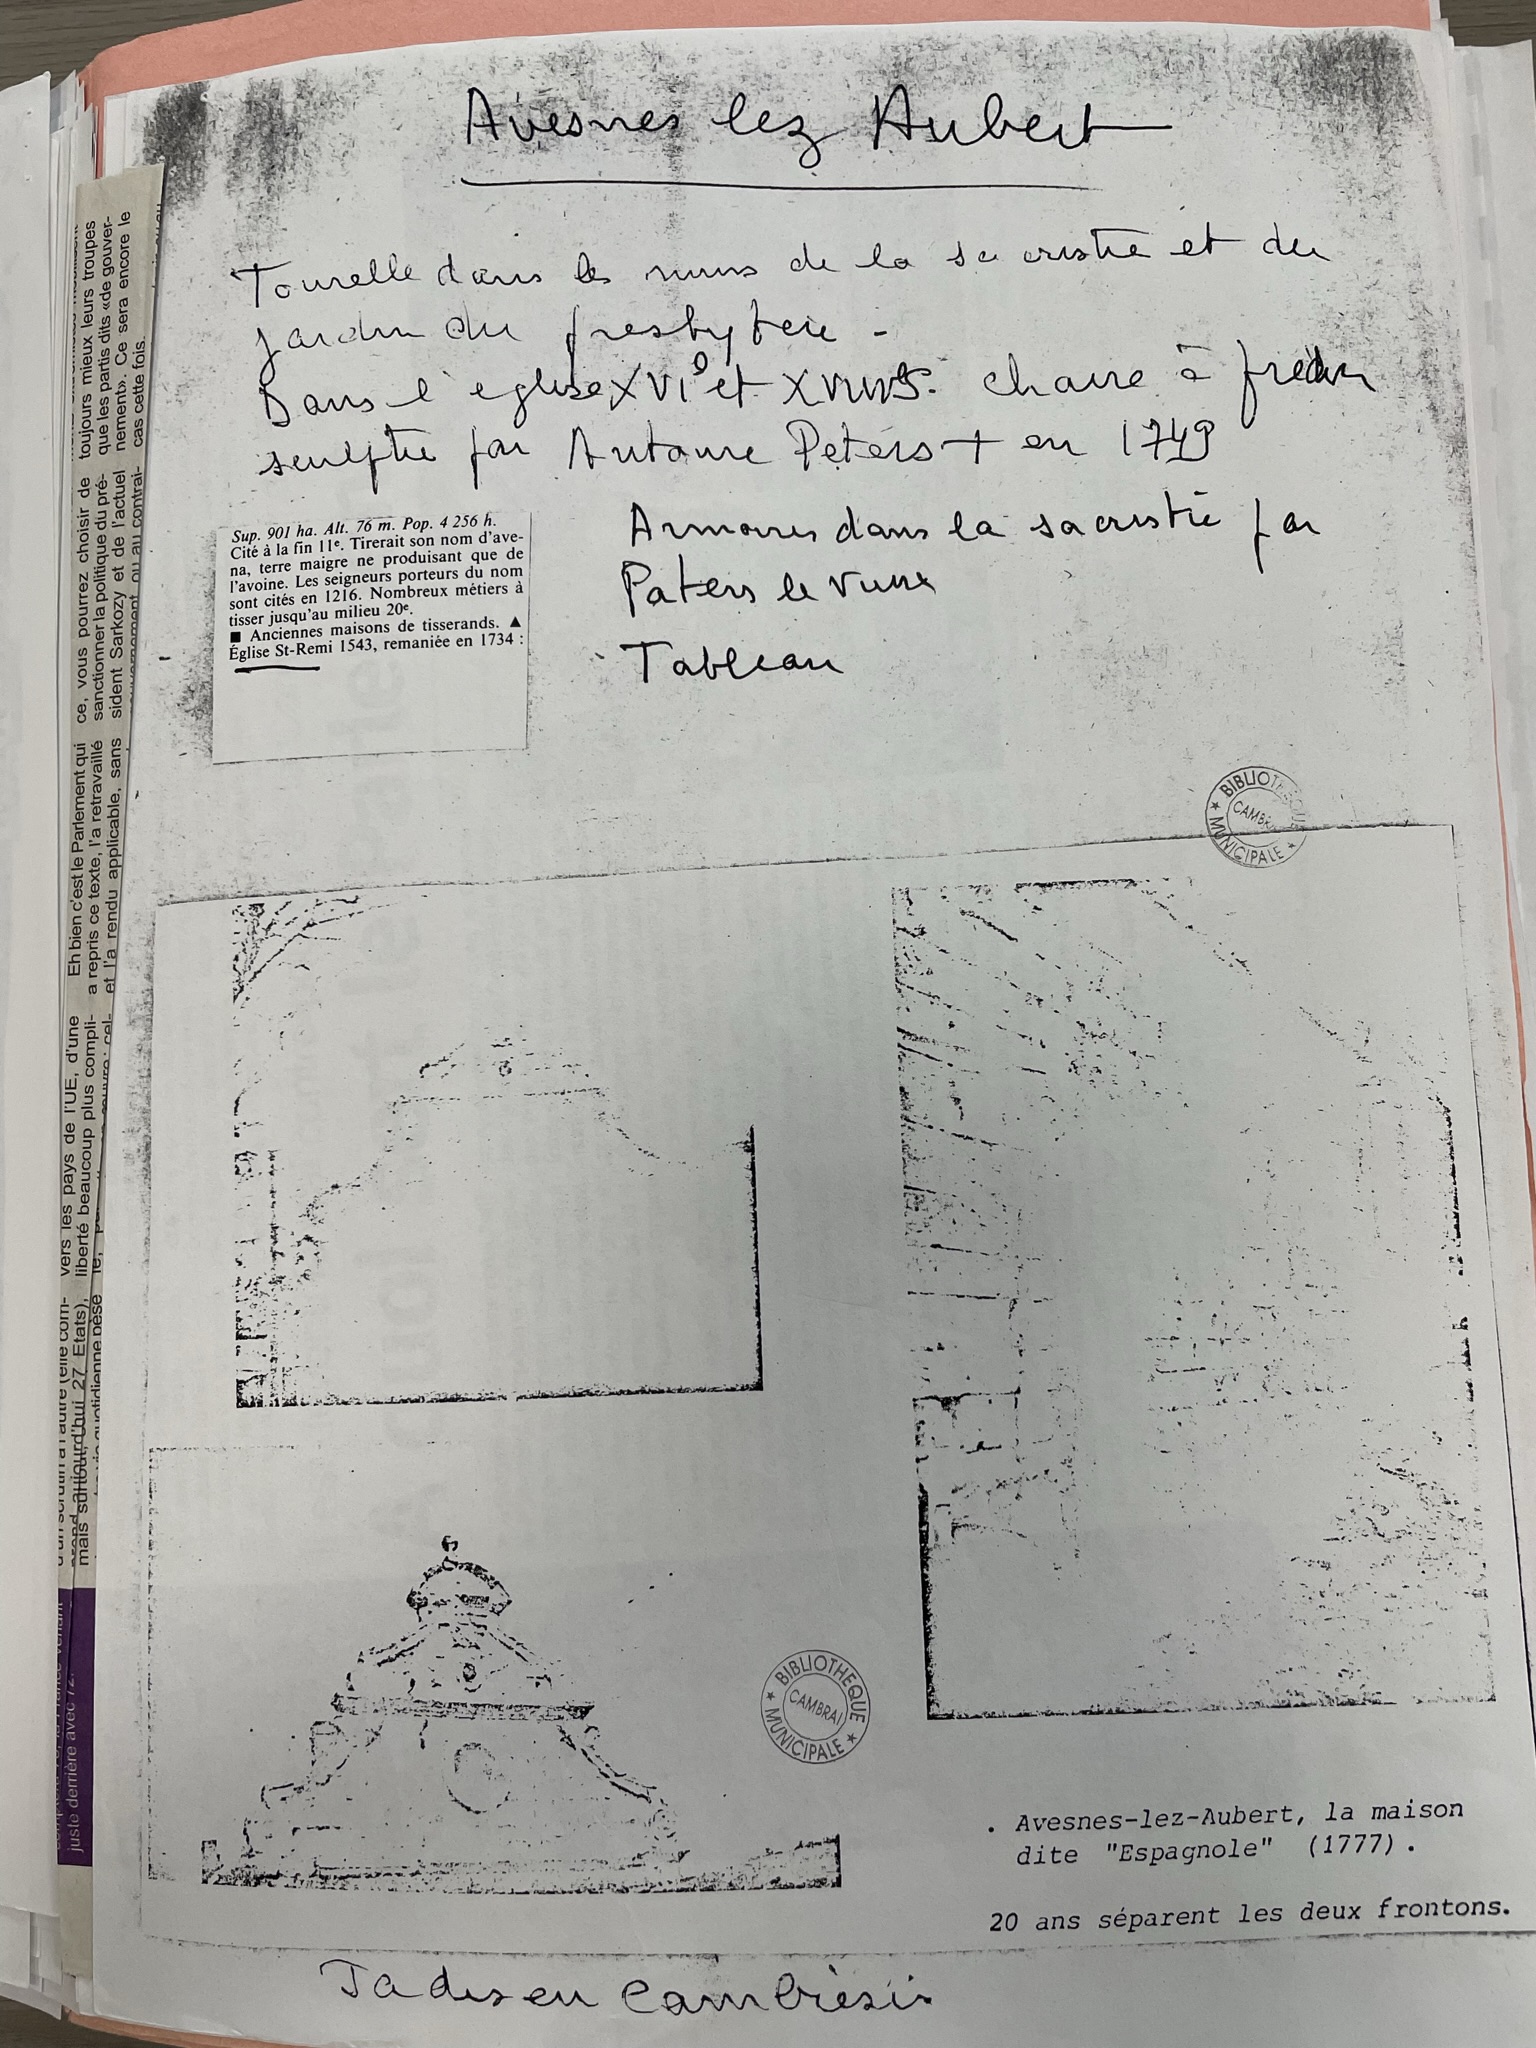 Avesnes lez Aubert
Tourelle dans les murs de la sacristie et du
jardin du presbytère -
Dans l'église XVIe et XVIIIes. chaire à
sculptée par Antoine Peters + en 1749
Armoires dans la sacristie par
Paters le vieux
Tableau
Sup. 901 ha. Alt. 76 m. Pop. 4 256 h.
Cité à la fin 11e. Tirerait son nom d'ave-
na, terre maigre ne produisant que de
l'avoine. Les seigneurs porteurs du nom
sont cités en 1216. Nombreux métiers à
tisser jusqu'au milieu 20e.
■ Anciennes maisons de tisserands. ▲
Église St-Remi 1543, remaniée en 1734 :
BIBLIOTHEQUE
CAMBRAI
★ MUNICIPALE ★
BIBLIOTHEQUE
CAMBRAI
★ MUNICIPALE ★
. Avesnes-lez-Aubert, la maison
dite "Espagnole" (1777).
20 ans séparent les deux frontons.
Jadis en Cambrésis
ce, vous pourrez choisir de
sanctionner la politique du pré-
sident Sarkozy et de l'actuel
gouvernement ou au contrai-
toujours mieux leurs troupes
que les partis dits «de gouver-
nement». Ce sera encore le
cas cette fois.
Eh bien c'est le Parlement qui
a repris ce texte, l'a retravaillé
et l'a rendu applicable, sans
vers les pays de l'UE, d'une
liberté beaucoup plus compli-
d'un scrutin à l'autre (elle com-
mais surtout,
aujourd'hui 27 Etats),
quotidienne pèse
juste derrière avec 72.